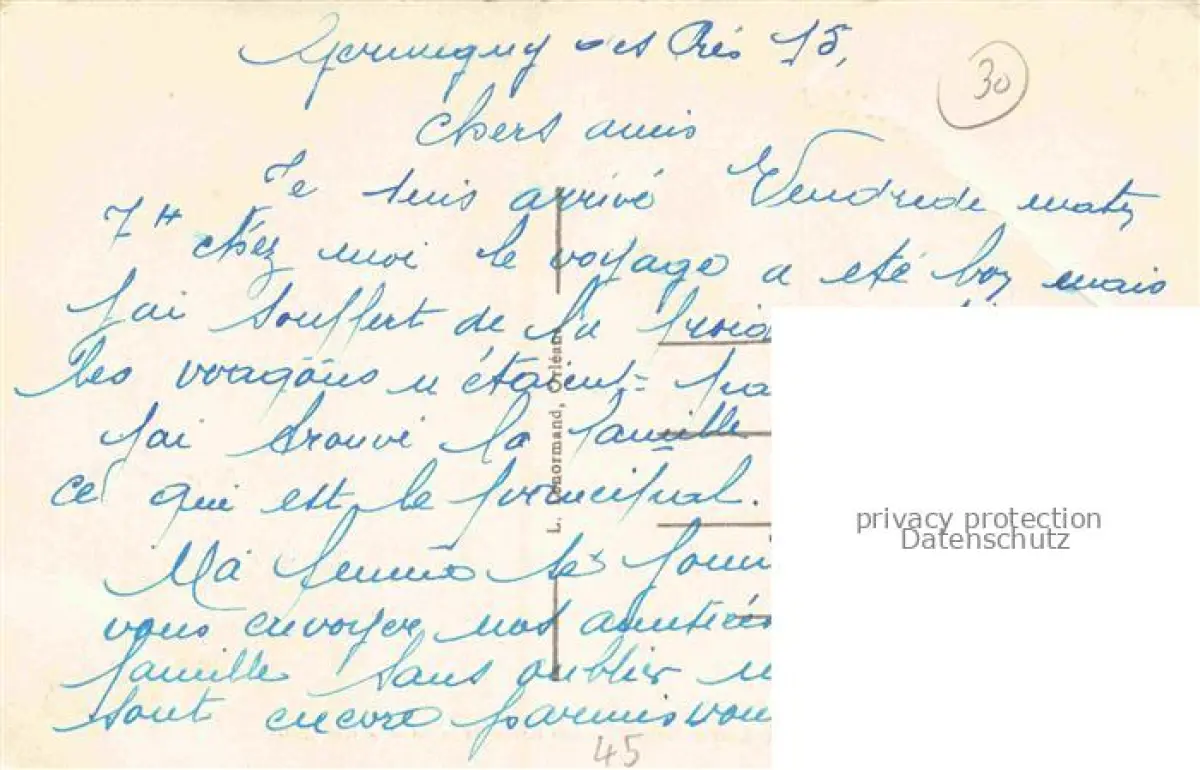 et Prés 15,
30
Chers amis
Je suis arrivé Vendrede matin
7H chez moi le voyage a eté bon mais
j'ai souffert de la froid
les wagons n'étaient pa
j'ai trouvé la famille
ce qui est le principal.
Ma femme se
vous envoyer nos amitiés
famille sans oublier
sont encore parmis vou
L. Lenormand, Orléans
45
privacy protection
Datenschutz